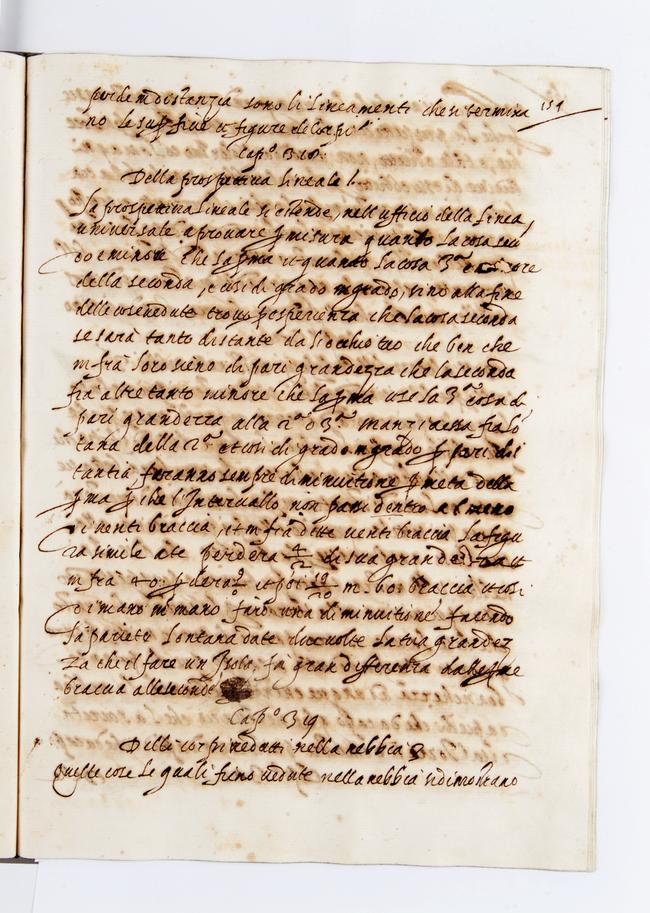 sono li lineamenti che si termina 154
no le superfitie et figure de Corpi
Cap.º 318.
Della prospettiva Lineale
La prospettiva Lineale si estende, nell'ufficio della Linea,
universale a provare p misura quanto la cosa secu
do e minore che la pma et quanto la cosa 3.a
della seconda, e cosi di grado in grado, sino alla fine
delle cose vedute trovo p esperienza che la cosa seconda
se sarà tanto distante da l'occhio tuo che ben che
infra loro sieno di pari grandezza che la seconda
fia altre tanto minore che la pma et se la 3.a cosa di
pari grandezza alla 2.a innanzi a essa fia lō
tana della 2.a et cosi di grado in grado p pari dis
tantia, faranno sempre diminuitione p metà della
pma p che l'Intervallo non passi dentro al
di venti braccia, et infra dette venti braccia la figu
ra simile a te perdera di sua grandezza et
infra 40. et poi 19/20 in 60. braccia et cosi
di mano in mano farà una diminuitione, facendo
la pariete lontana da te due volte la tua grandez
za che il fare un Isola, fa gran differenza dalle pme
braccia alle seconde
Cap.º 319
Delle corpi vedutti nella nebbia
Quelle cose le quali fieno vedute nella nebbia si dimostrano